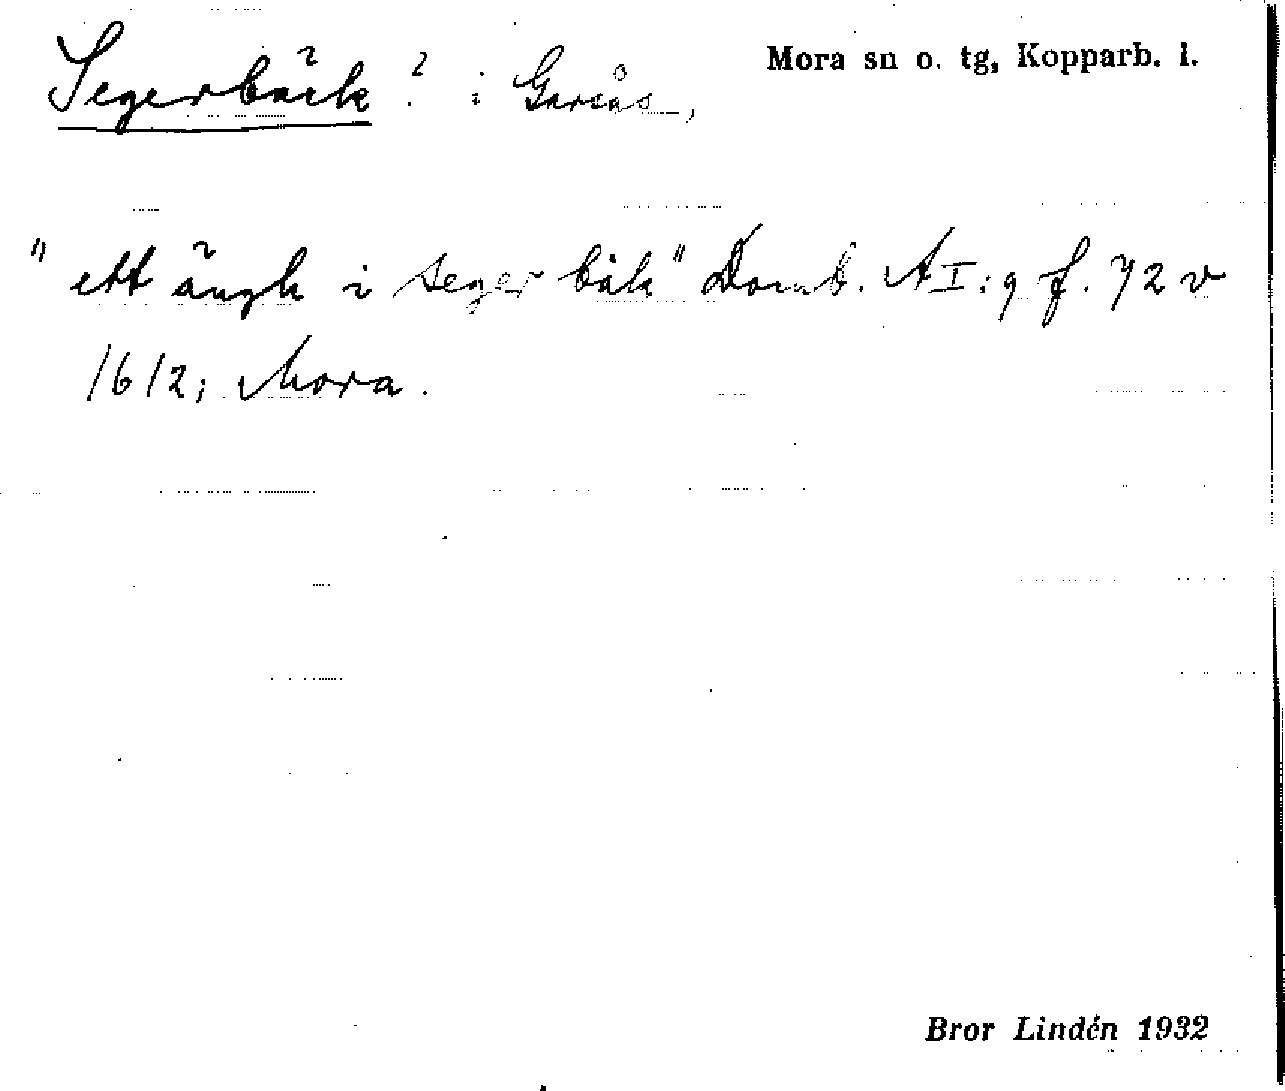 Segerbäck ? i Garsås,
Mora sn o. tg, Kopparb. l.
"ett ängh i seger bäk" Domb. A I: 9 f. 72 v
1612; Mora.
Bror Lindén 1932